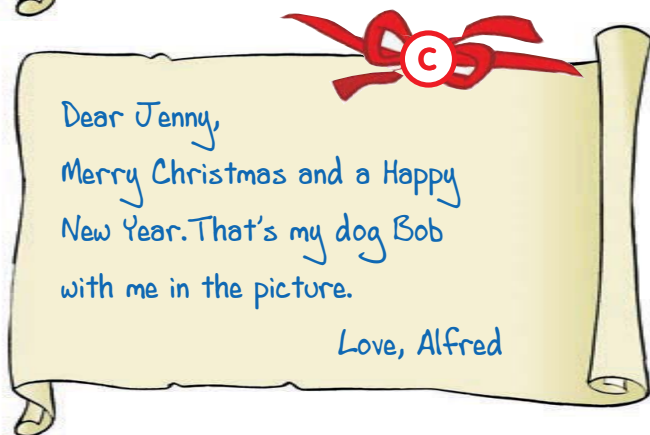 C
Dear Jenny,
Merry Christmas and a Happy
New Year. That's my dog Bob
with me in the picture.
Love, Alfred